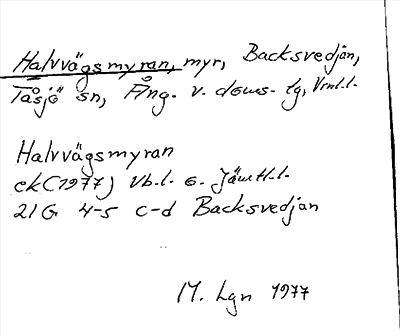 Halvvägsmyran, myr, Backsvedjan,
Tåsjö sn, Ång. v. doms- lg, Vrnl.l.
Halvvägsmyran
ek (1977) Vb.l. o. Jämtl.l.
21 G 4-5 c-d Backsvedjan
M. Lgn 1977